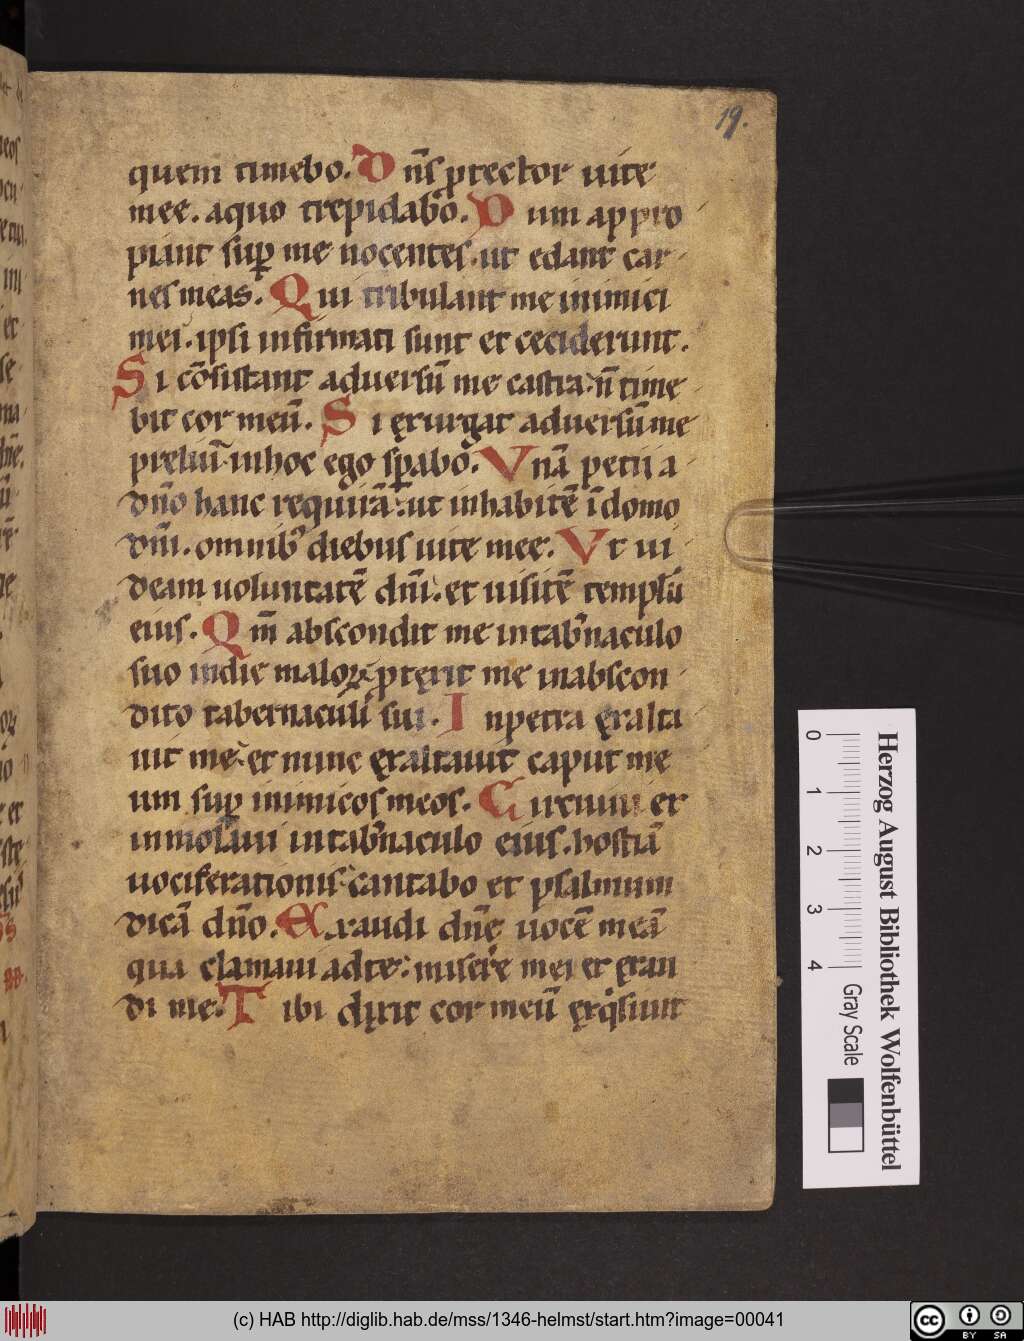 19.
quem timebo. Dn̄s ꝓtector uite
mee. aquo trepidabo. Dum appro
piant suꝑ me nocentes. ut edant car
nes meas. Qui tribulant me inimici
mei. ipsi infirmati sunt et ceciderunt.
Si cōsistant aduersū me castra: n̄ time
bit cor meū. Si exurgat aduersū me
preliū. inhoc ego sꝑabo. Vnā petii a
dn̄o hanc requirā: ut inhabitē ī domo
dn̄i. omnibꝰ diebus uite mee. Vt ui
deam uoluntatē dn̄i. et uisitē templū
eius. Qm̄ abscondit me intab̄naculo
suo indie maloꝝ: ꝓtexit me inabscon
dito tabernaculi sui. Inpetra exalta
uit me: et nunc exaltauit caput me
um suꝑ inimicos meos. Circuiui et
inmolaui intab̄naculo eius. hostiā
uociferationis: cantabo et psalmum
dicā dn̄o. Exaudi dn̄e uocē meā
qua clamaui adte: miserere mei et exau
di me. Tibi dixit cor meū exqͥsiuit
0 1 2 3 4
Gray Scale
Herzog August Bibliothek Wolfenbüttel
(c) HAB http://diglib.hab.de/mss/1346-helmst/start.htm?image=00041
cc BY SA